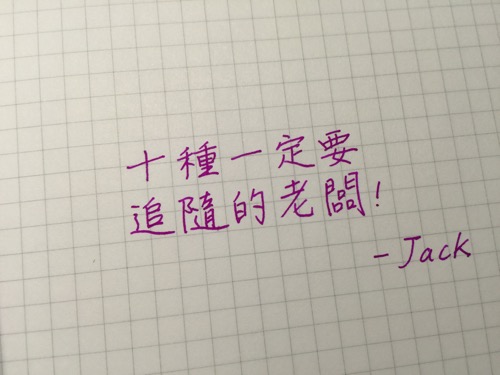 十種一定要
追隨的老闆!
- Jack